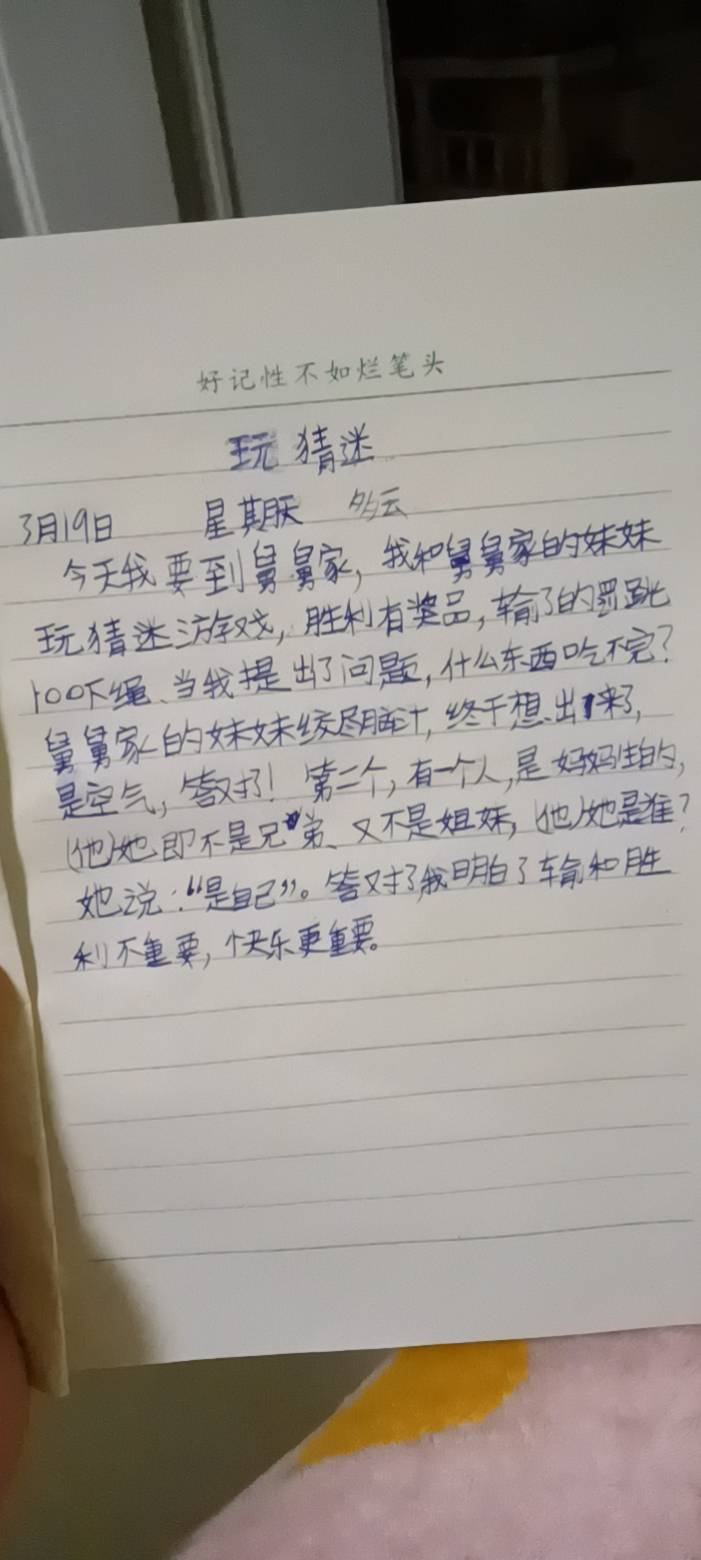 好记性不如烂笔头
玩猜迷
3月19日 星期天 多云
今天我要到舅舅家，我和舅舅家的妹妹
玩猜迷游戏，胜利有奖品，输了的罚跳
100下绳、当我提出了问题，什么东西吃不完？
舅舅家的妹妹绞尽脑汁，终于想出来了，
是空气，答对了！第二个，有一个人，是妈妈生的，
(他)她即不是兄弟、又不是姐妹，(他)她是谁？
她说：“是自己”。答对了，我明白了输和胜
利不重要，快乐更重要。